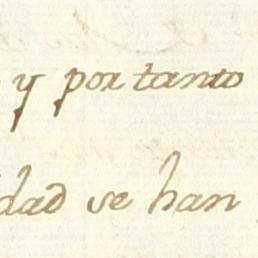 y por tanto
dad se han